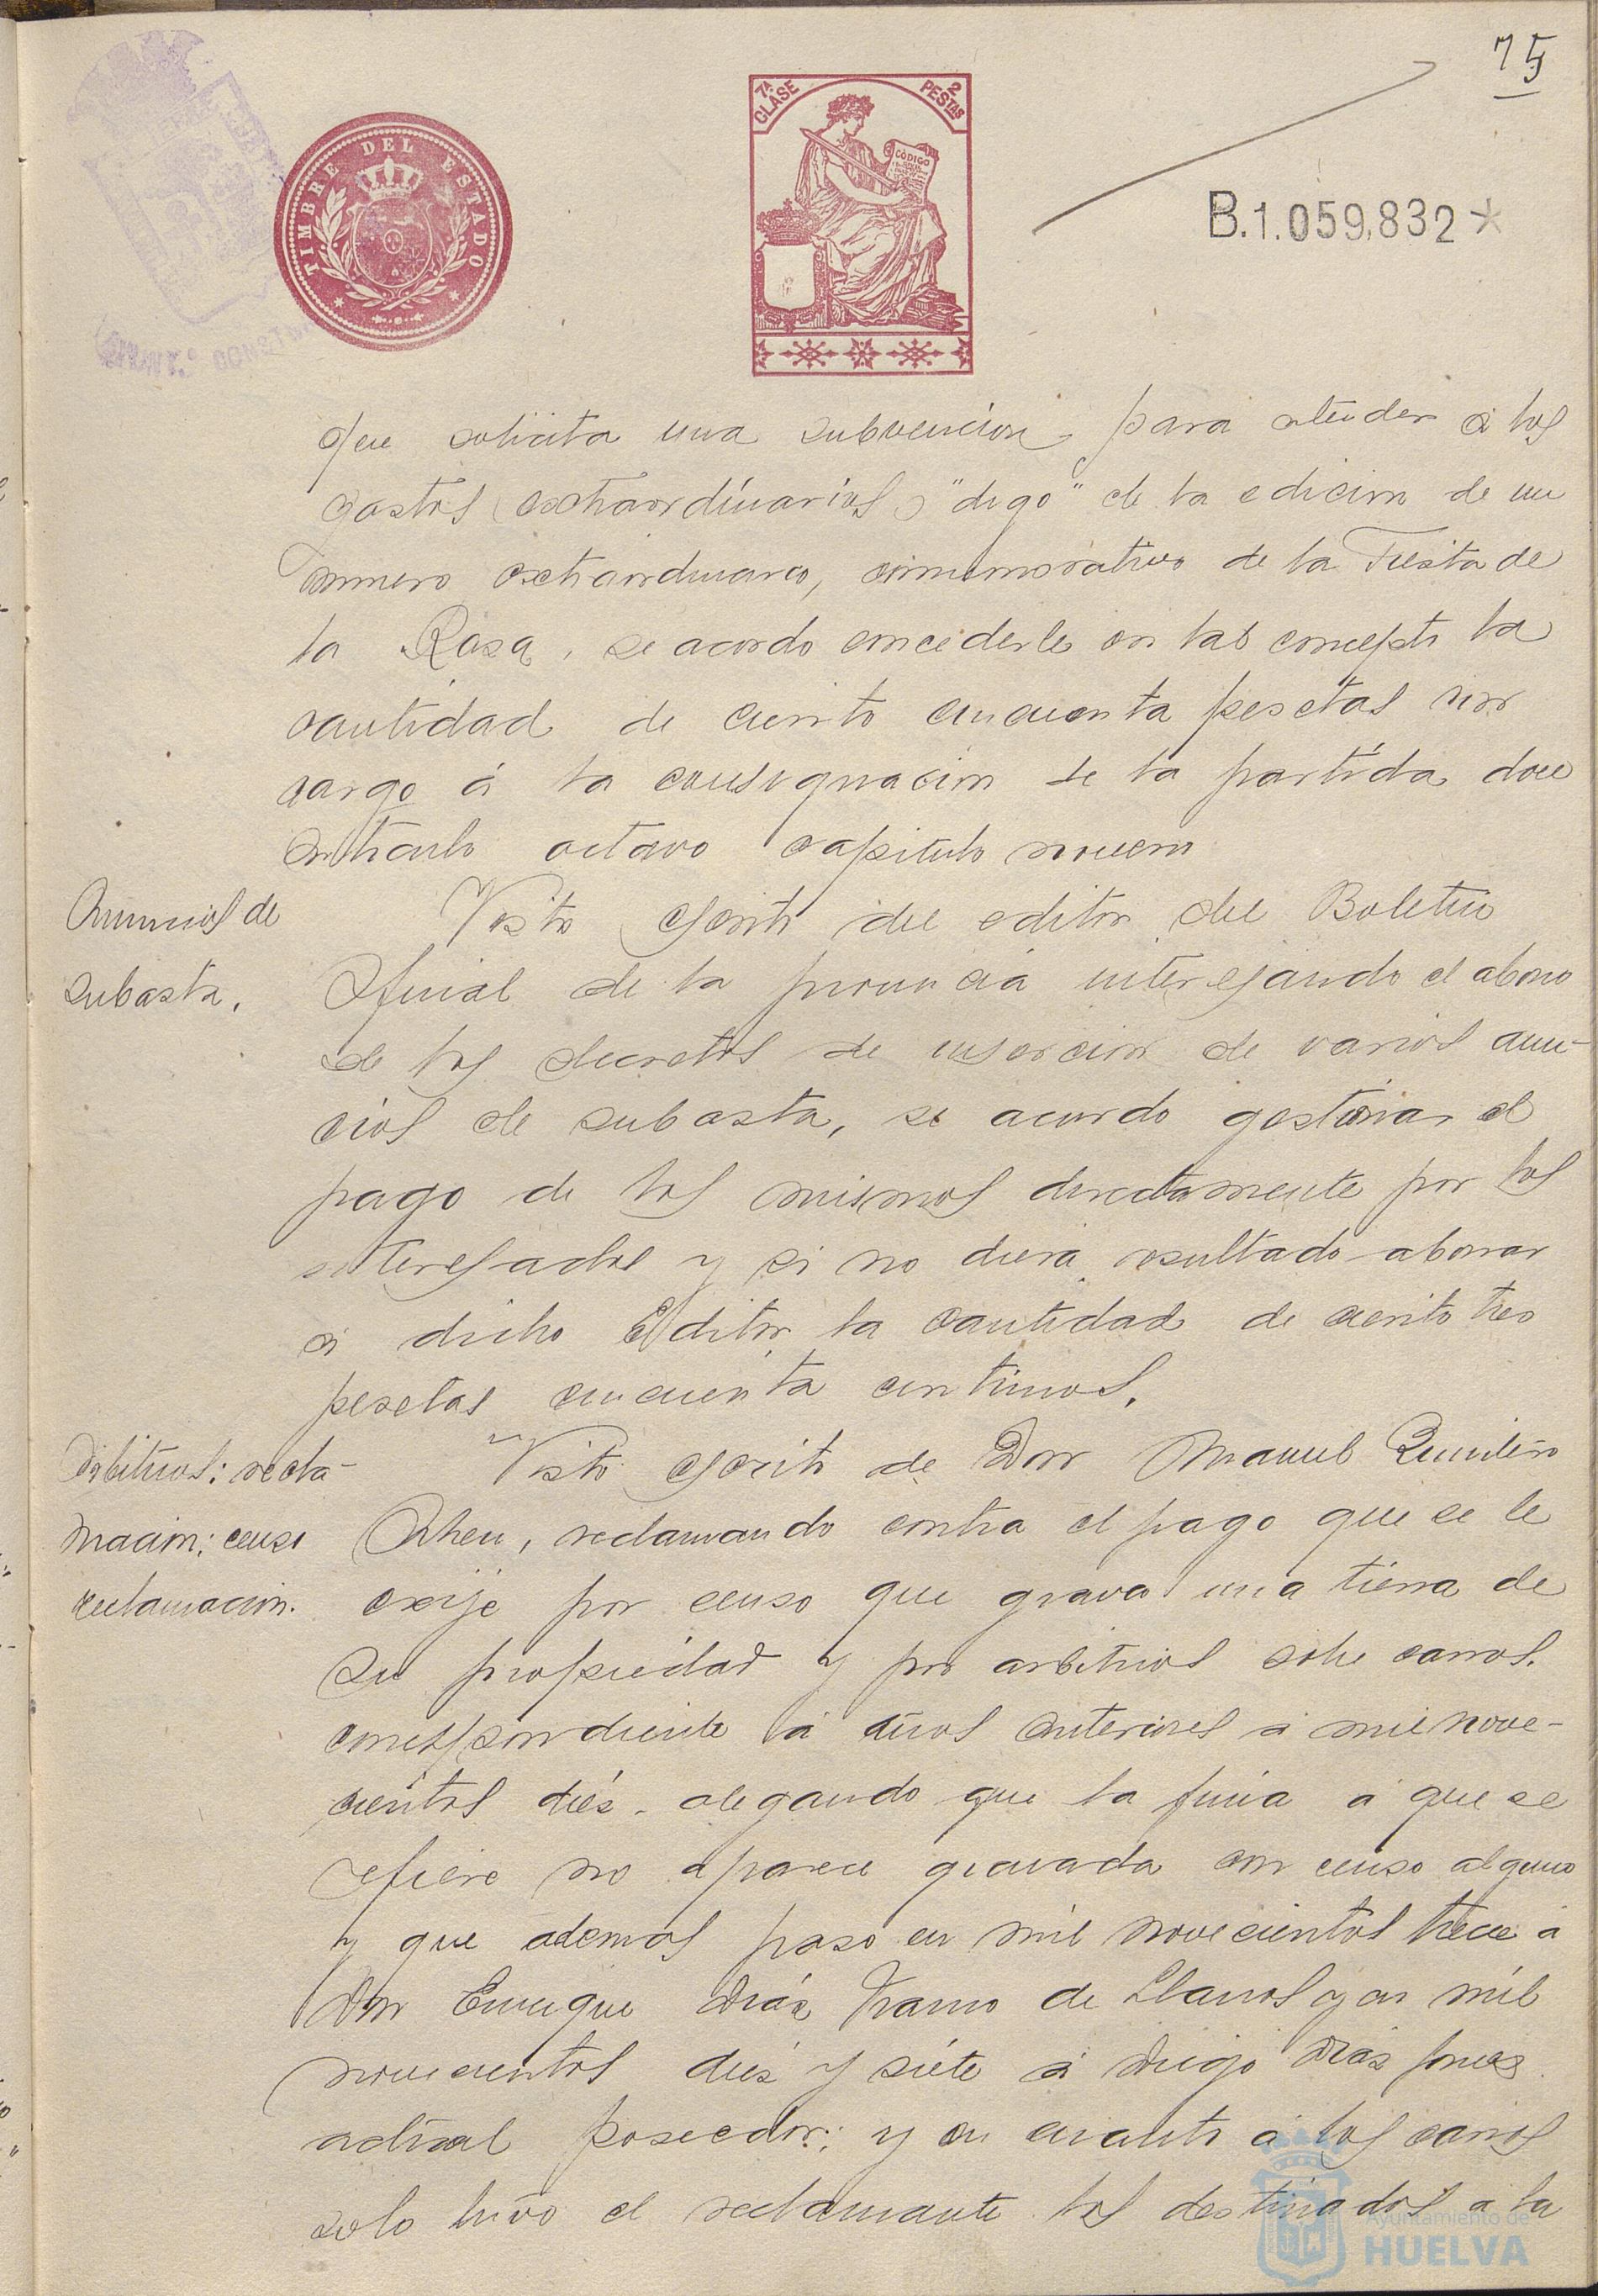 75
TIMBRE DEL ESTADO
7ª CLASE
2 PESTAS
CÓDIGO
B.1.059,832*
AYUNT.º CONST
que solicita una subvencion para atender á los
gastos (extraordinarios) "digo" de la edicion de un
numero extraordinario, conmemorativo de la Fiesta de
la Raza, se acordo concederle en tal concepto la
cantidad de ciento cincuenta pesetas con
cargo á la consignacion de la partida doce
articulo octavo capitulo noveno
Anuncios de
subasta.
Visto escrito del editor del Boletin
Oficial de la provincia interesando el abono
de los decretos de insercion de varios anun-
cios de subasta, se acordo gestionar el
pago de los mismos directamente por los
interesados y si no diera resultado abonar
á dicho Editor la cantidad de ciento tres
pesetas cincuenta centimos.
Arbitrios: recla-
macion; censo
reclamacion.
Visto escrito de Don Manuel Quintero
reclamando contra el pago que se le
exije por censo que grava una tierra de
su propiedad y por arbitrios sobre carros.
correspondiente á años anteriores á mil nove-
cientos diés. alegando que la finca á que se
refiere no aparece gravada con censo alguno
y que ademas paso en mil novecientos trece á
Don Enrique Diáz Franco de Llanos y en mil
novecientos diés y siete á Diego Dias
actual poseedor; y en cuanto á los carros
solo tuvo el reclamante los destinados a la
Ayuntamiento de
HUELVA